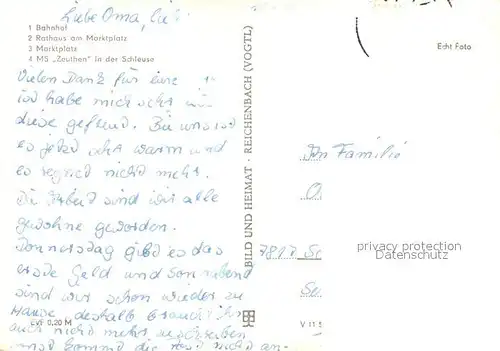 Liebe Oma,
1 Bahnhof
2 Rathaus am Marktplatz
3 Marktplatz
4 MS „Zeuthen" in der Schleuse
Vielen Dank für eure
ich habe mich sehr
diese gefreud. Bei uns ist
es jetzd sehr warm und
es regned nichd mehr.
Die Arbeid sind wir alle
gewohne geworden.
Donnersdag gibd es das
ersde Geld und Sonnabend
sind wir schon wieder zu
Hause deshalb brauchd ihr
auch nichd mehr zuschreiben
und kommd die Posd nichd an.
EVP 0,20 M
BILD UND HEIMAT · REICHENBACH (VOGTL)
Echt Foto
An Familie
O
7817 Sc
V 11 5
privacy protection
Datenschutz